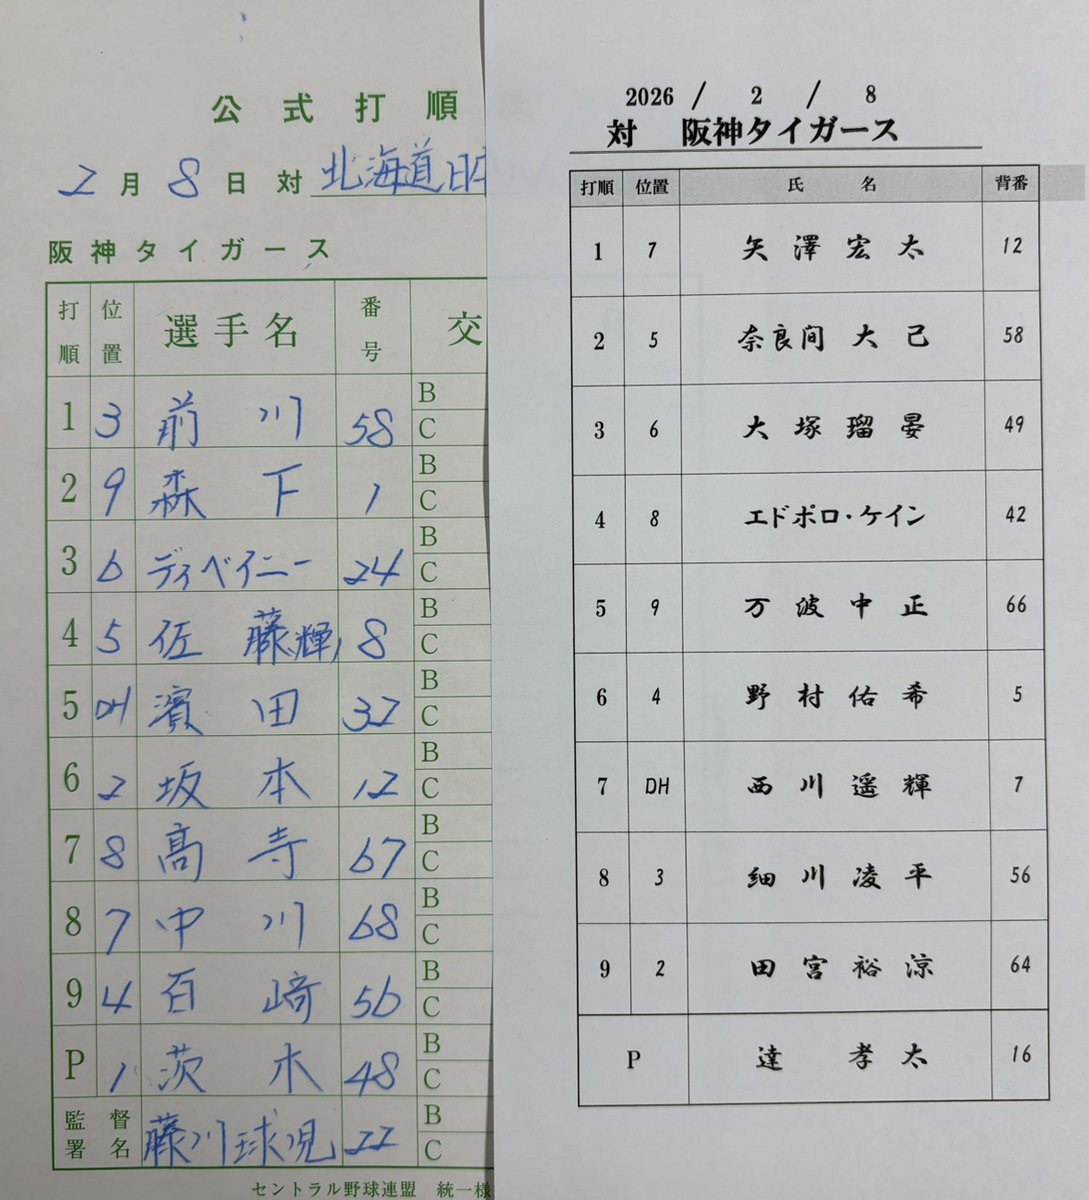 公式打順
2月8日 対 北海道日
阪神タイガース
打順 位置 選手名 番号 交
1 3 前川 58 B C
2 9 森下 1 B C
3 6 ディベイニー 24 B C
4 5 佐藤(輝) 8 B C
5 DH 濱田 32 B C
6 2 坂本 12 B C
7 8 髙寺 67 B C
8 7 中川 68 B C
9 4 百﨑 56 B C
P 1 茨木 48 B C
監督署名 藤川球児 22 B C
セントラル野球連盟 統一様
2026 / 2 / 8
対 阪神タイガース
打順 位置 氏名 背番
1 7 矢澤宏太 12
2 5 奈良間大己 58
3 6 大塚瑠晏 49
4 8 エドポロ・ケイン 42
5 9 万波中正 66
6 4 野村佑希 5
7 DH 西川遥輝 7
8 3 細川凌平 56
9 2 田宮裕涼 64
P 達孝太 16